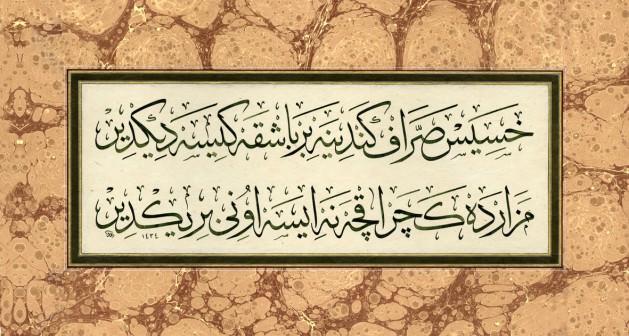 خسیس صرّاف كندینه بر باشقه كیسه دیكدیر
مزارده كچر اقچه نه ایسه اونی بریكدیر
١٤٣٤